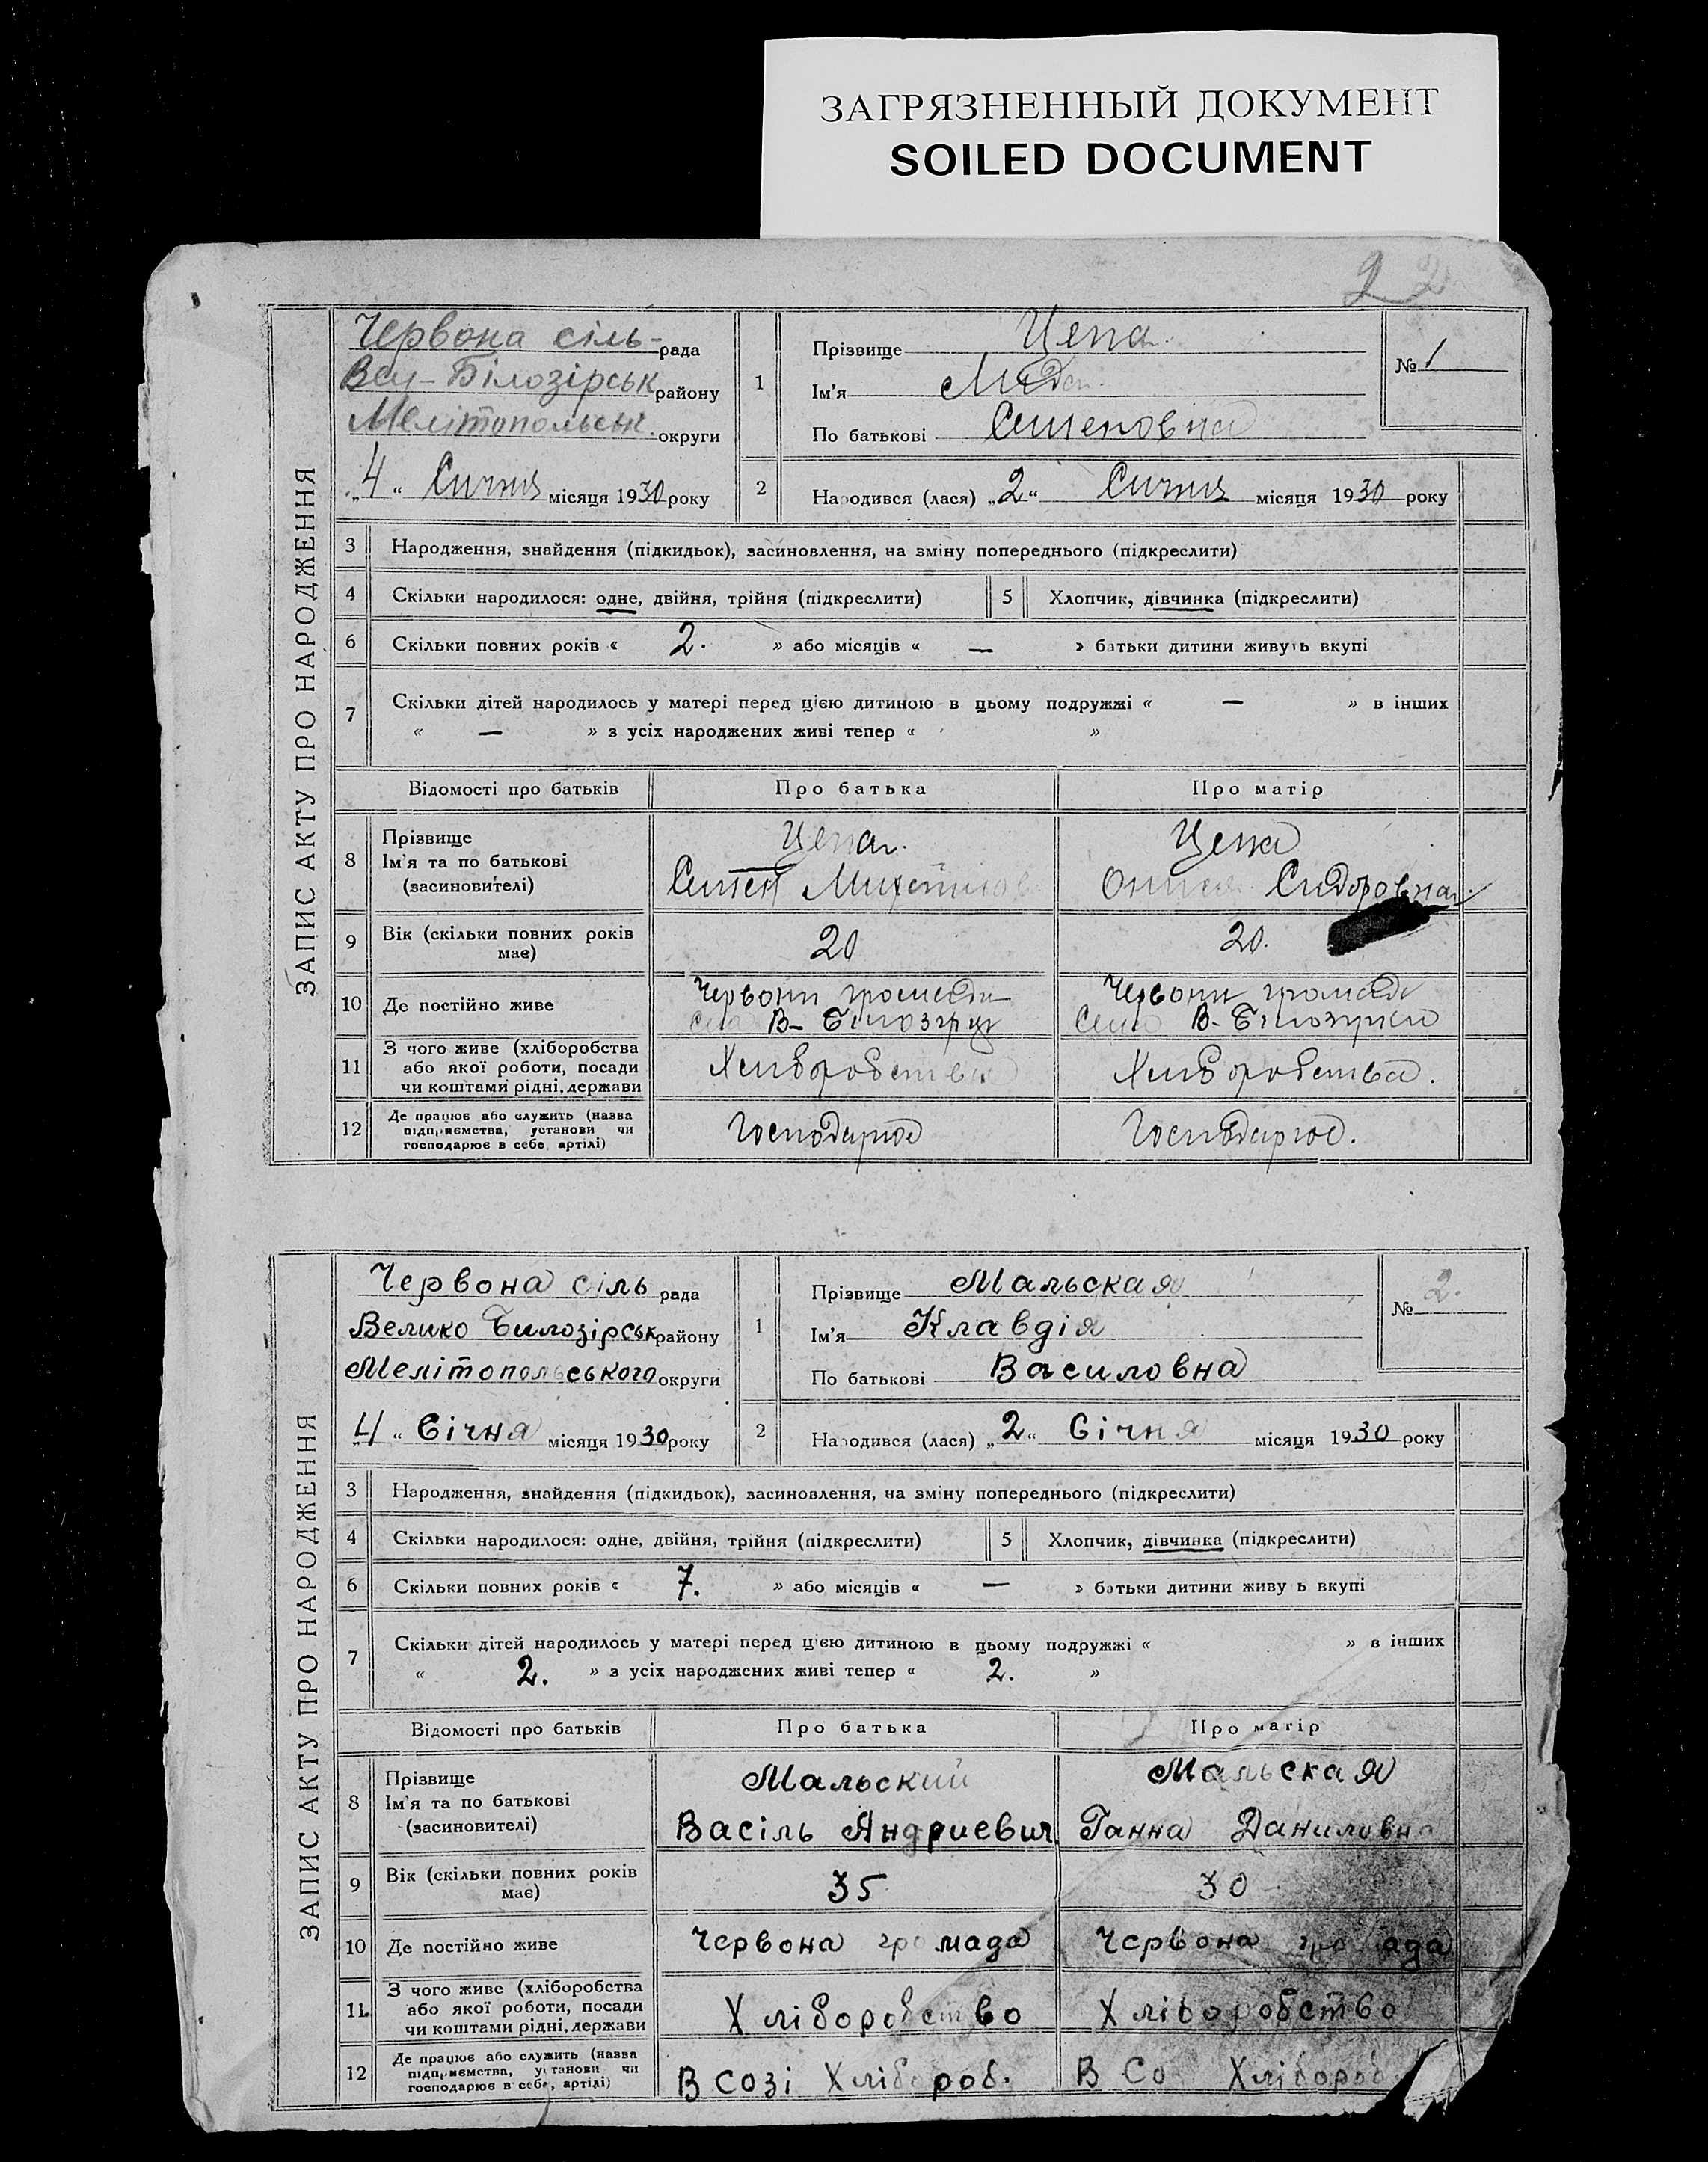 ЗАГРЯЗНЕННЫЙ ДОКУМЕНТ
SOILED DOCUMENT
2
ЗАПИС АКТУ ПРО НАРОДЖЕННЯ
Червона сіль- рада
Білозірськ району
Мелітопольськ. округи
„4“ Сичня місяця 1930 року
1
Прізвище Цепа
Ім'я Лида
По батькові Семеновна
№ 1
2
Народився (лася) „2“ Сичня місяця 1930 року
3 Народження, знайдення (підкидьок), засиновлення, на зміну попереднього (підкреслити)
4 Скільки народилося: одне, двійня, трійня (підкреслити) 5 Хлопчик, дівчинка (підкреслити)
6 Скільки повних років « 2. » або місяців « — » батьки дитини живуть вкупі
7 Скільки дітей народилось у матері перед цією дитиною в цьому подружжі « — » в інших
« — » з усіх народжених живі тепер « »
Відомості про батьків Про батька Про матір
8 Прізвище Ім'я та по батькові (засиновителі)
Цепа Цепа
Семен Сидоровна
9 Вік (скільки повних років має) 20 20.
10 Де постійно живе
Червони громади Червони громади
В- В-
11 З чого живе (хліборобства або якої роботи, посади чи коштами рідні, держави
Хлиборобства Хлиборобства.
12 Де працює або служить (назва підприємства, установи чи господарює в себе, артілі)
Господарює Господарює.
ЗАПИС АКТУ ПРО НАРОДЖЕННЯ
Червона сіль рада
Велико Билозірськ району
Мелітопольського округи
„4“ Січня місяця 1930 року
1
Прізвище Мальская
Ім'я Клавдія
По батькові Василовна
№ 2.
2
Народився (лася) „2“ Січня місяця 1930 року
3 Народження, знайдення (підкидьок), засиновлення, на зміну попереднього (підкреслити)
4 Скільки народилося: одне, двійня, трійня (підкреслити) 5 Хлопчик, дівчинка (підкреслити)
6 Скільки повних років « 7. » або місяців « — » батьки дитини живу ь вкупі
7 Скільки дітей народилось у матері перед цією дитиною в цьому подружжі « » в інших
« 2. » з усіх народжених живі тепер « 2. »
Відомості про батьків Про батька Про матір
8 Прізвище Ім'я та по батькові (засиновителі)
Мальский Мальская
Васіль Андриевич Ганна Даниловна
9 Вік (скільки повних років має) 35 30
10 Де постійно живе Червона громада Червона громада
11. З чого живе (хліборобства або якої роботи, посади чи коштами рідні, держави
Хліборобство Хліборобство
12 Де працює або служить (назва підприємства, установи чи господарює в себе, артілі)
В созі Хлібороб. В Со Хлібороб